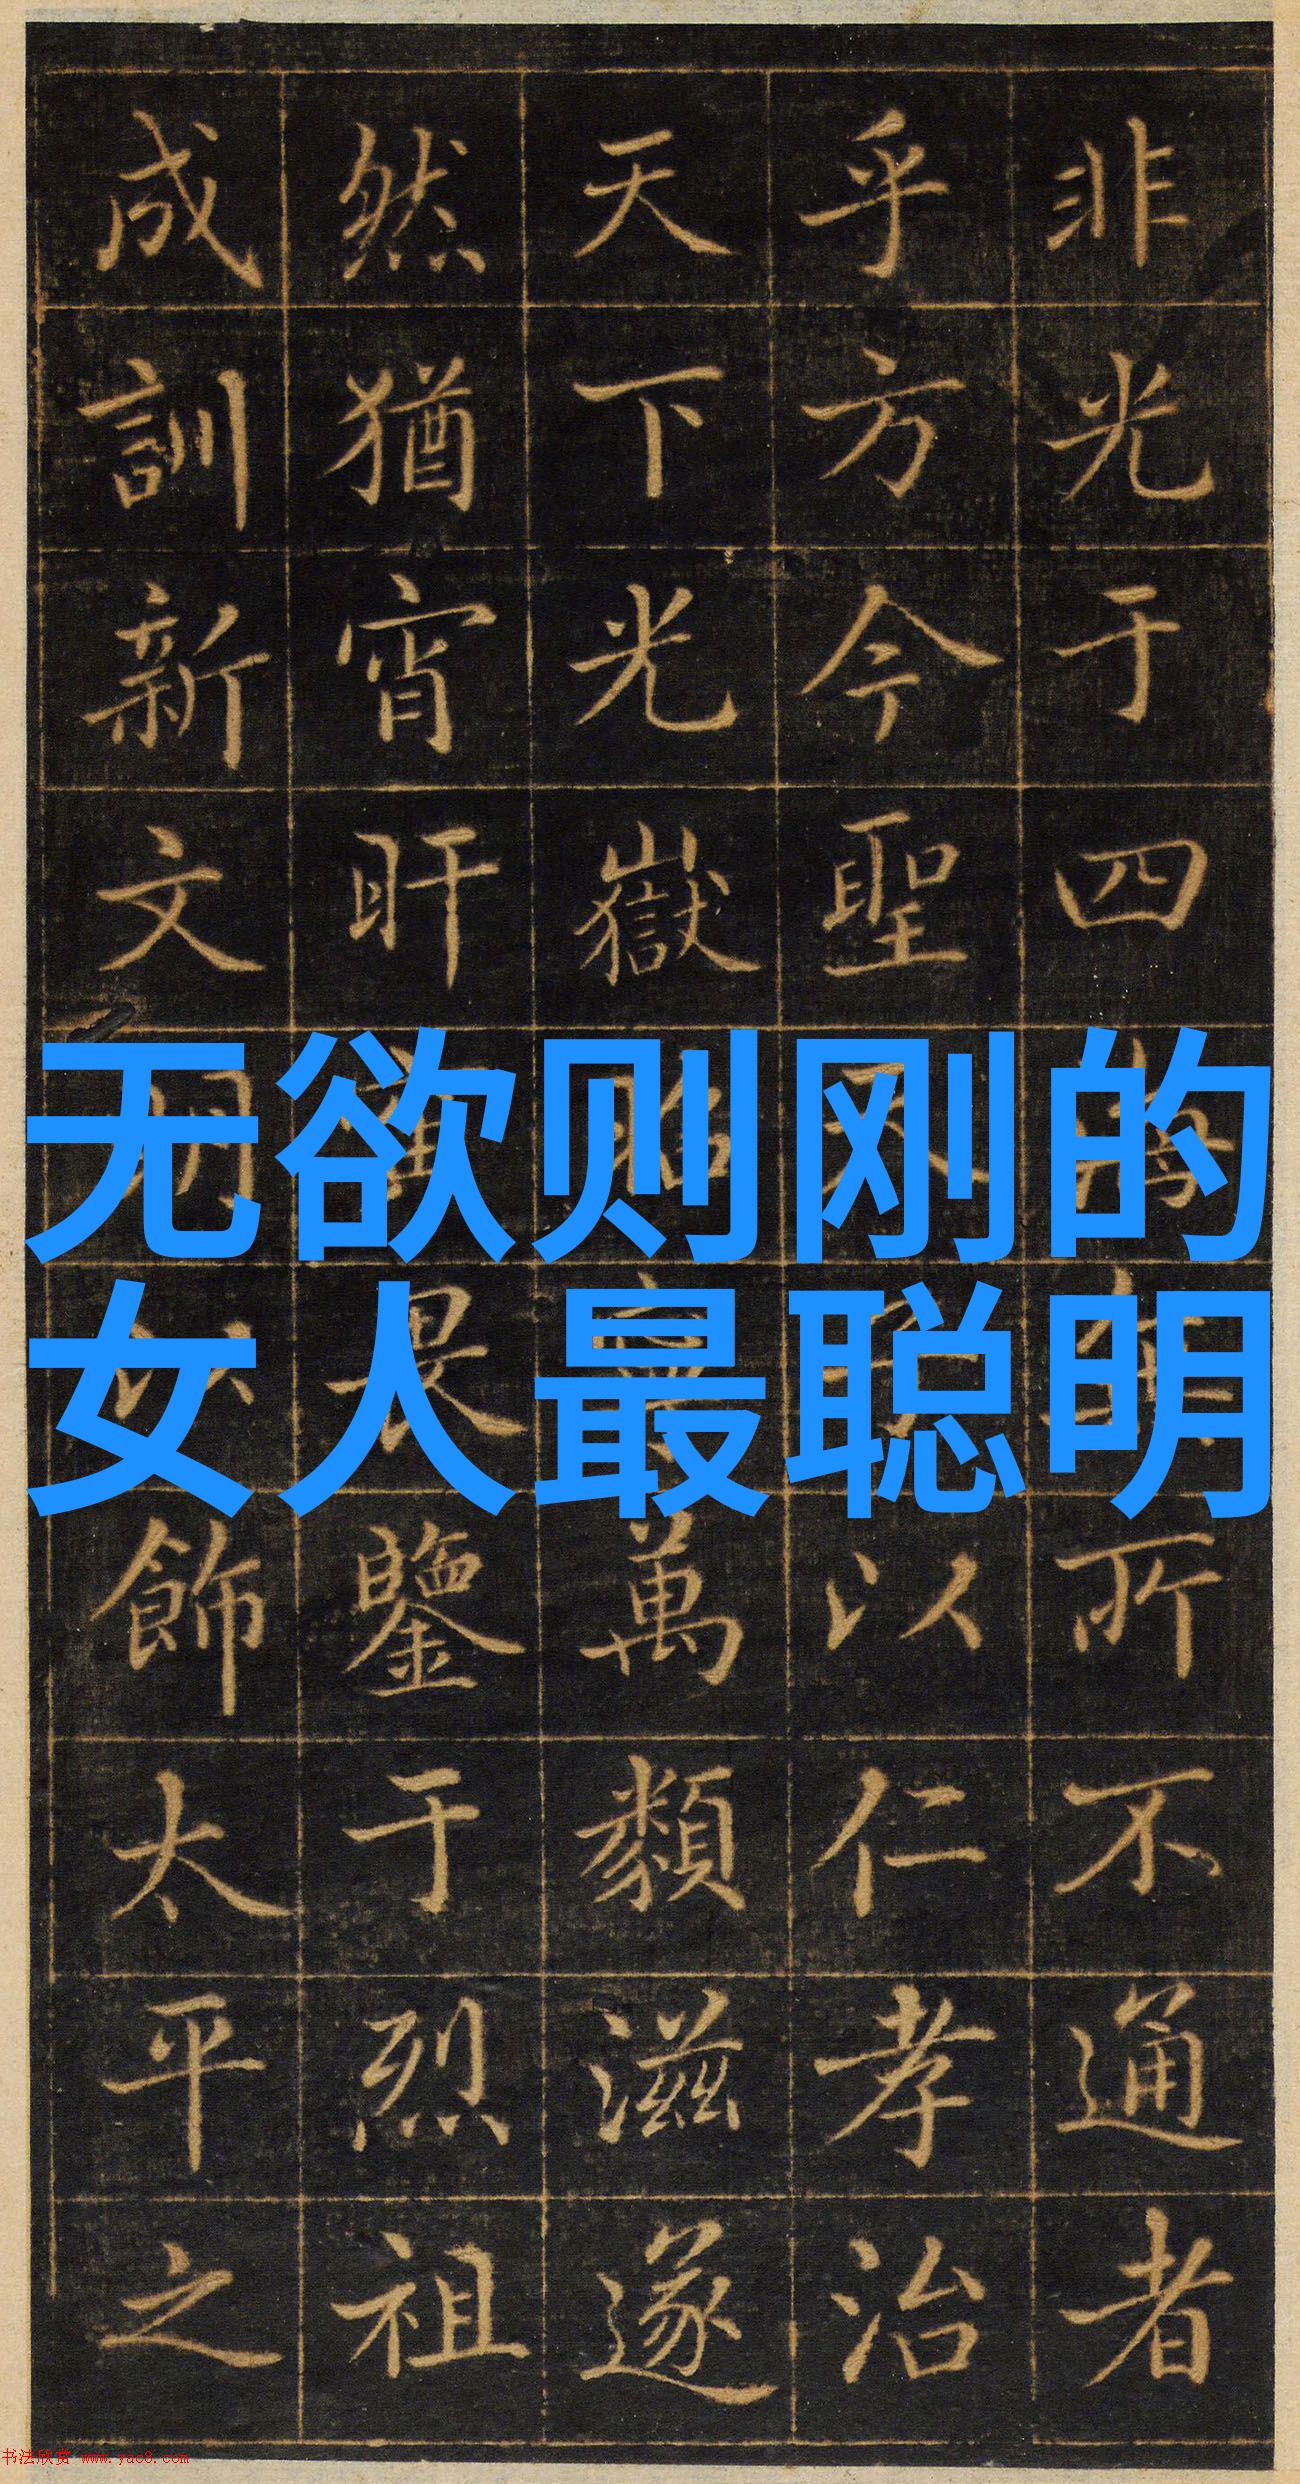 非光于四海所不通者
乎方今聖天子以仁孝治
天下光嶽萬類滋遂
然猶宵旰寅畏鑒于烈祖
成訓新文明以飾太平之
无欲则刚的
女人最聪明
书法欣赏 www.yac8.com